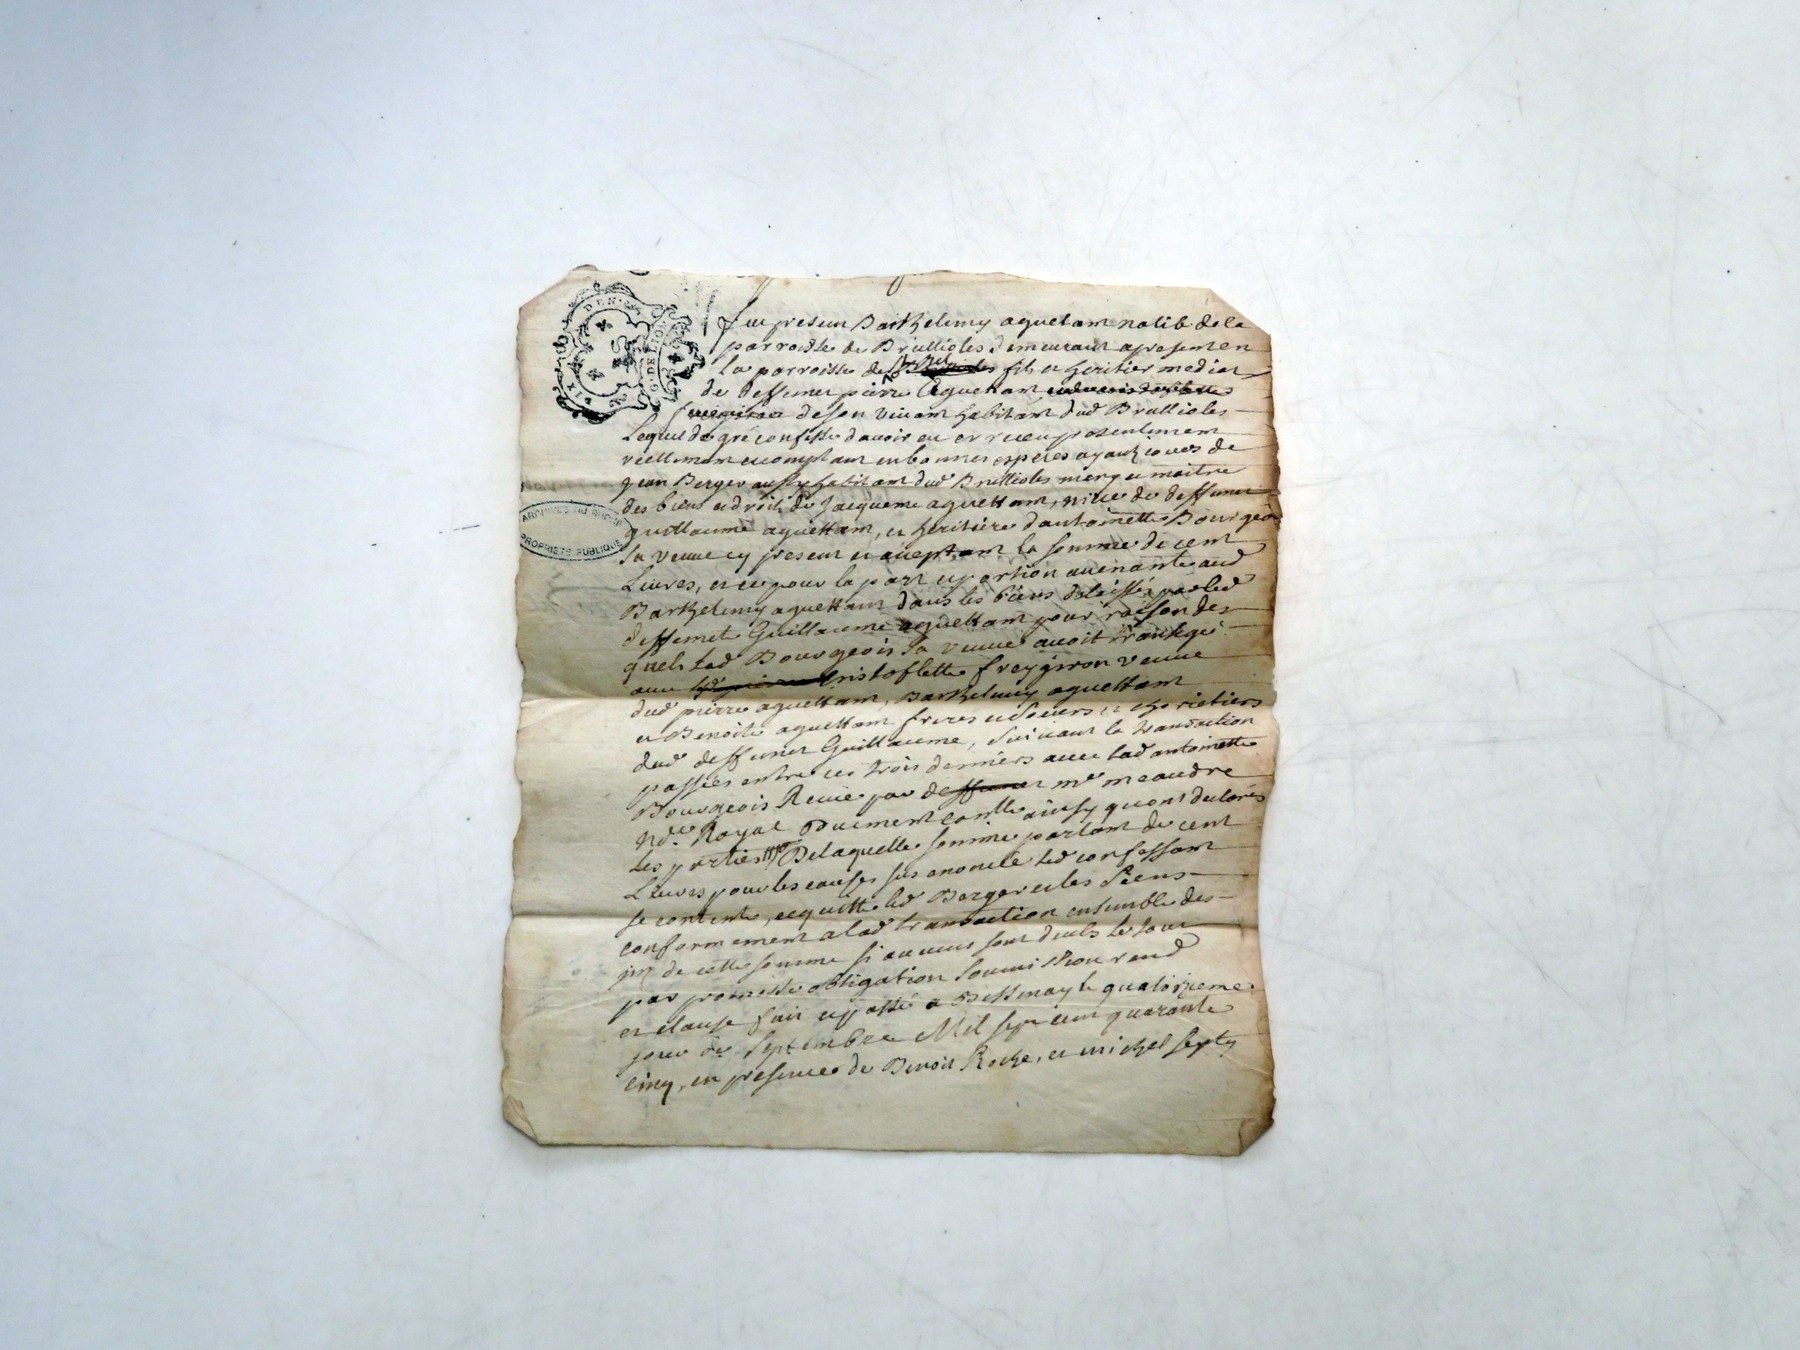 DEN
G. DE LION
ARCHIVES DU RHONE
PROPRIETE PUBLIQUE
fut present Barthelemy aguettant natif de la
parroisse de Brullioles demeurant apresent en
la parroisse de fils et heritier mediat
de deffunct pierre Aguettant
de son vivant habitant dud Brullioles
Lequel de gré confesse d'avoir eu et receu presentement
reellement et comptant en bonnes especes ayant cours de
jean Berger aussy habitant dud Brullioles mary et maitre
des biens et droits de Jacqueme aguettant, niece de deffunct
guillaume aguettant, et heritiere d'antoinette Bourgeois
sa veuve cy present et acceptant la somme de cent
Livres, et ce pour la part et portion avenante aud
Barthelemy aguettant dans les biens delaissés par led
deffunct Guillaume aguettant pour raison des
quels lad Bourgeois sa veuve avoit transigé
avec Cristoflette freygiron veuve
dud pierre aguettant, Barthelemy aguettant
et Benoite aguettant freres et soeurs et heritiers
dud deffunct Guillaume, suivant la transaction
passées entre ces trois derniers avec lad antoinette
Bourgeois Receue par deffunct me meaudre
Nore Royal Duement conllé ainsy qu'ont declarés
les parties De laquelle somme partant de cent
Livres pour les causes sus enoncée led confessant
se contente, acquitte led Berger et les siens
conformement a lad transaction ensemble des
jnt de cette somme si aucuns sont deubs le tout
par promesse obligation soumission rend
et clause fait et passé a Bessenay le quatorzieme
jour de Septembre Mil sept cent quarante
cinq, en presence de Benoit Roche, et michel